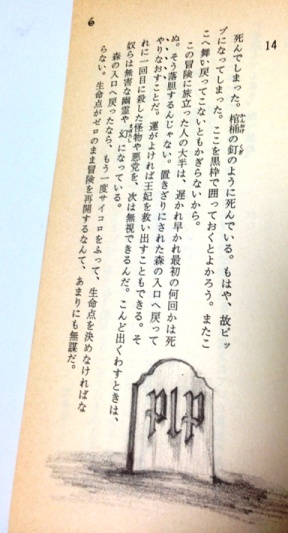 14
死んでしまった。棺桶の釘のように死んでいる。もはや、故ピッ
プになってしまった。ここを黒枠で囲っておくとよかろう。またこ
こへ舞い戻ってこないともかぎらないから。
この冒険に旅立った人の大半は、遅かれ早かれ最初の何回かは死
ぬ。そう落胆するんじゃない。置きざりにされた森の入口へ戻って
やりなおすことだ。運がよければ王妃を救い出すこともできる。そ
れに一回目に殺した怪物や悪党を、次は無視できるんだ。こんど出くわすときは、
奴らは無害な幽霊や幻になっている。
森の入口へ戻ったなら、もう一度サイコロをふって、生命点を決めなければな
らない。生命点がゼロのまま冒険を再開するなんて、あまりにも無謀だ。
6
PIP